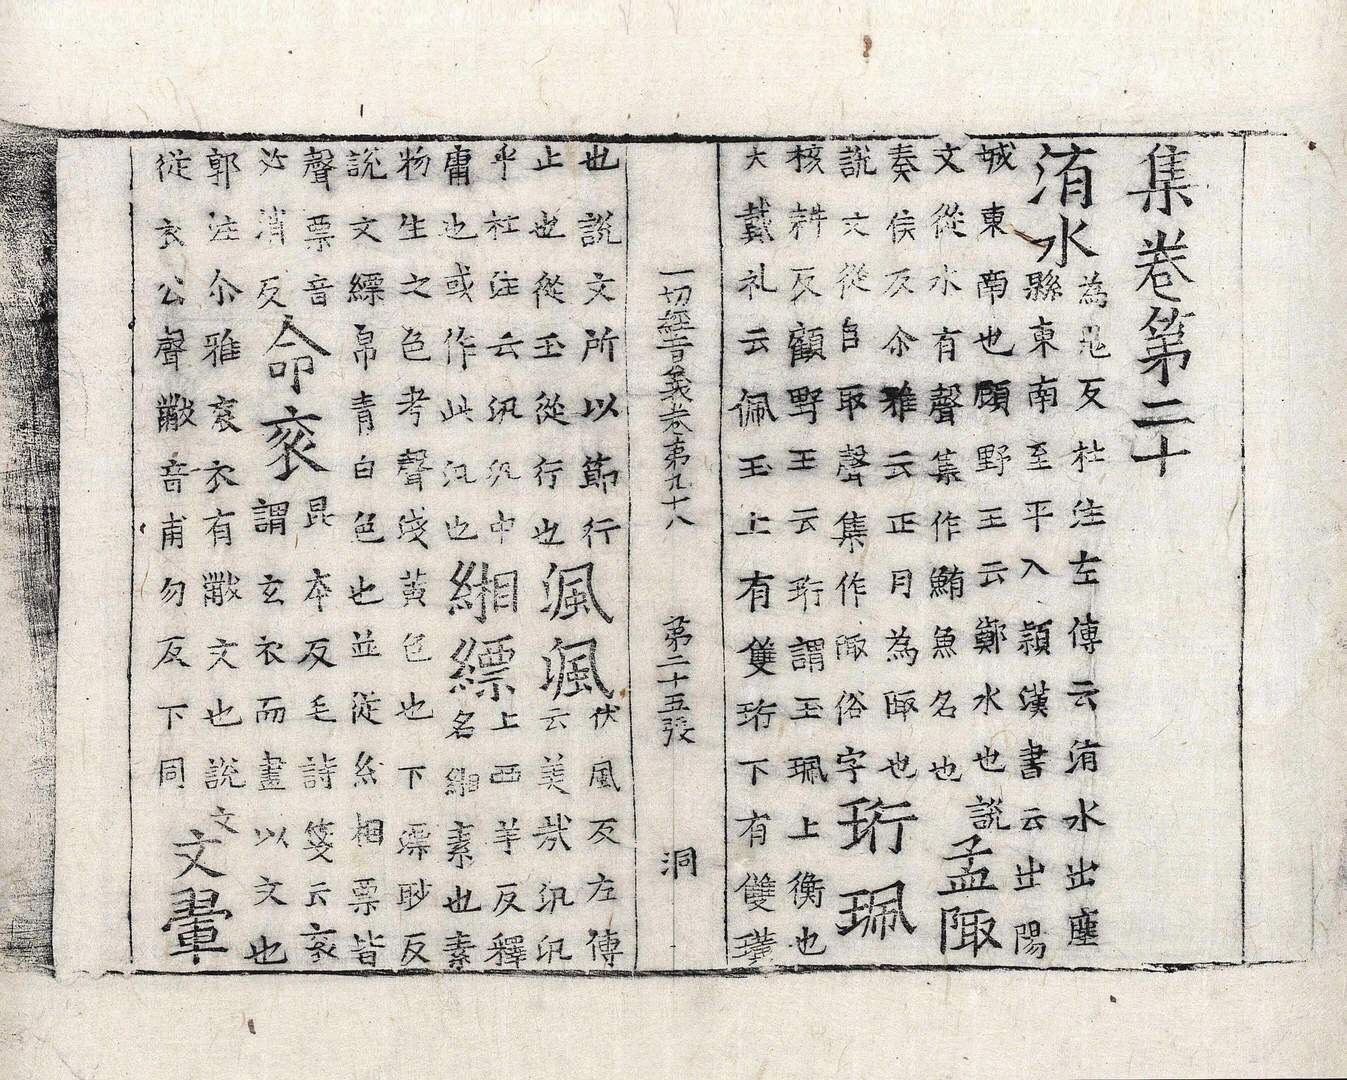 集卷第二十
洧水
為鬼反杜注左傳云洧水出塵
縣東南至平入潁漢書云出陽
城東南也顧野王云鄭水也說
文從水有聲集作鮪魚名也
孟陬
奏侯反尒雅云正月為陬也
說文從自取聲集作陬俗字
珩珮
核耕反顧野王云珩謂玉珮上衡也
大戴礼云佩玉上有雙珩下有雙璜
一切經音義卷第九十八 第二十五張 洞
也說文所以節行
止也從玉從行也
渢渢
伏風反左傳
云美哉汎汎
乎杜注云汎汎中
庸也或作此汎也
緗縹
上西羊反釋
名緗素也素
物生之色考聲淺黃色也下漂眇反
說文縹帛青白色也並從糸相票皆
聲票音
必消反
命衮
昆本反毛詩箋云衮
謂玄衣而畫以文也
郭注尒雅衮衣有黻文也說文
從衣公聲黻音甫勿反下同
文翬